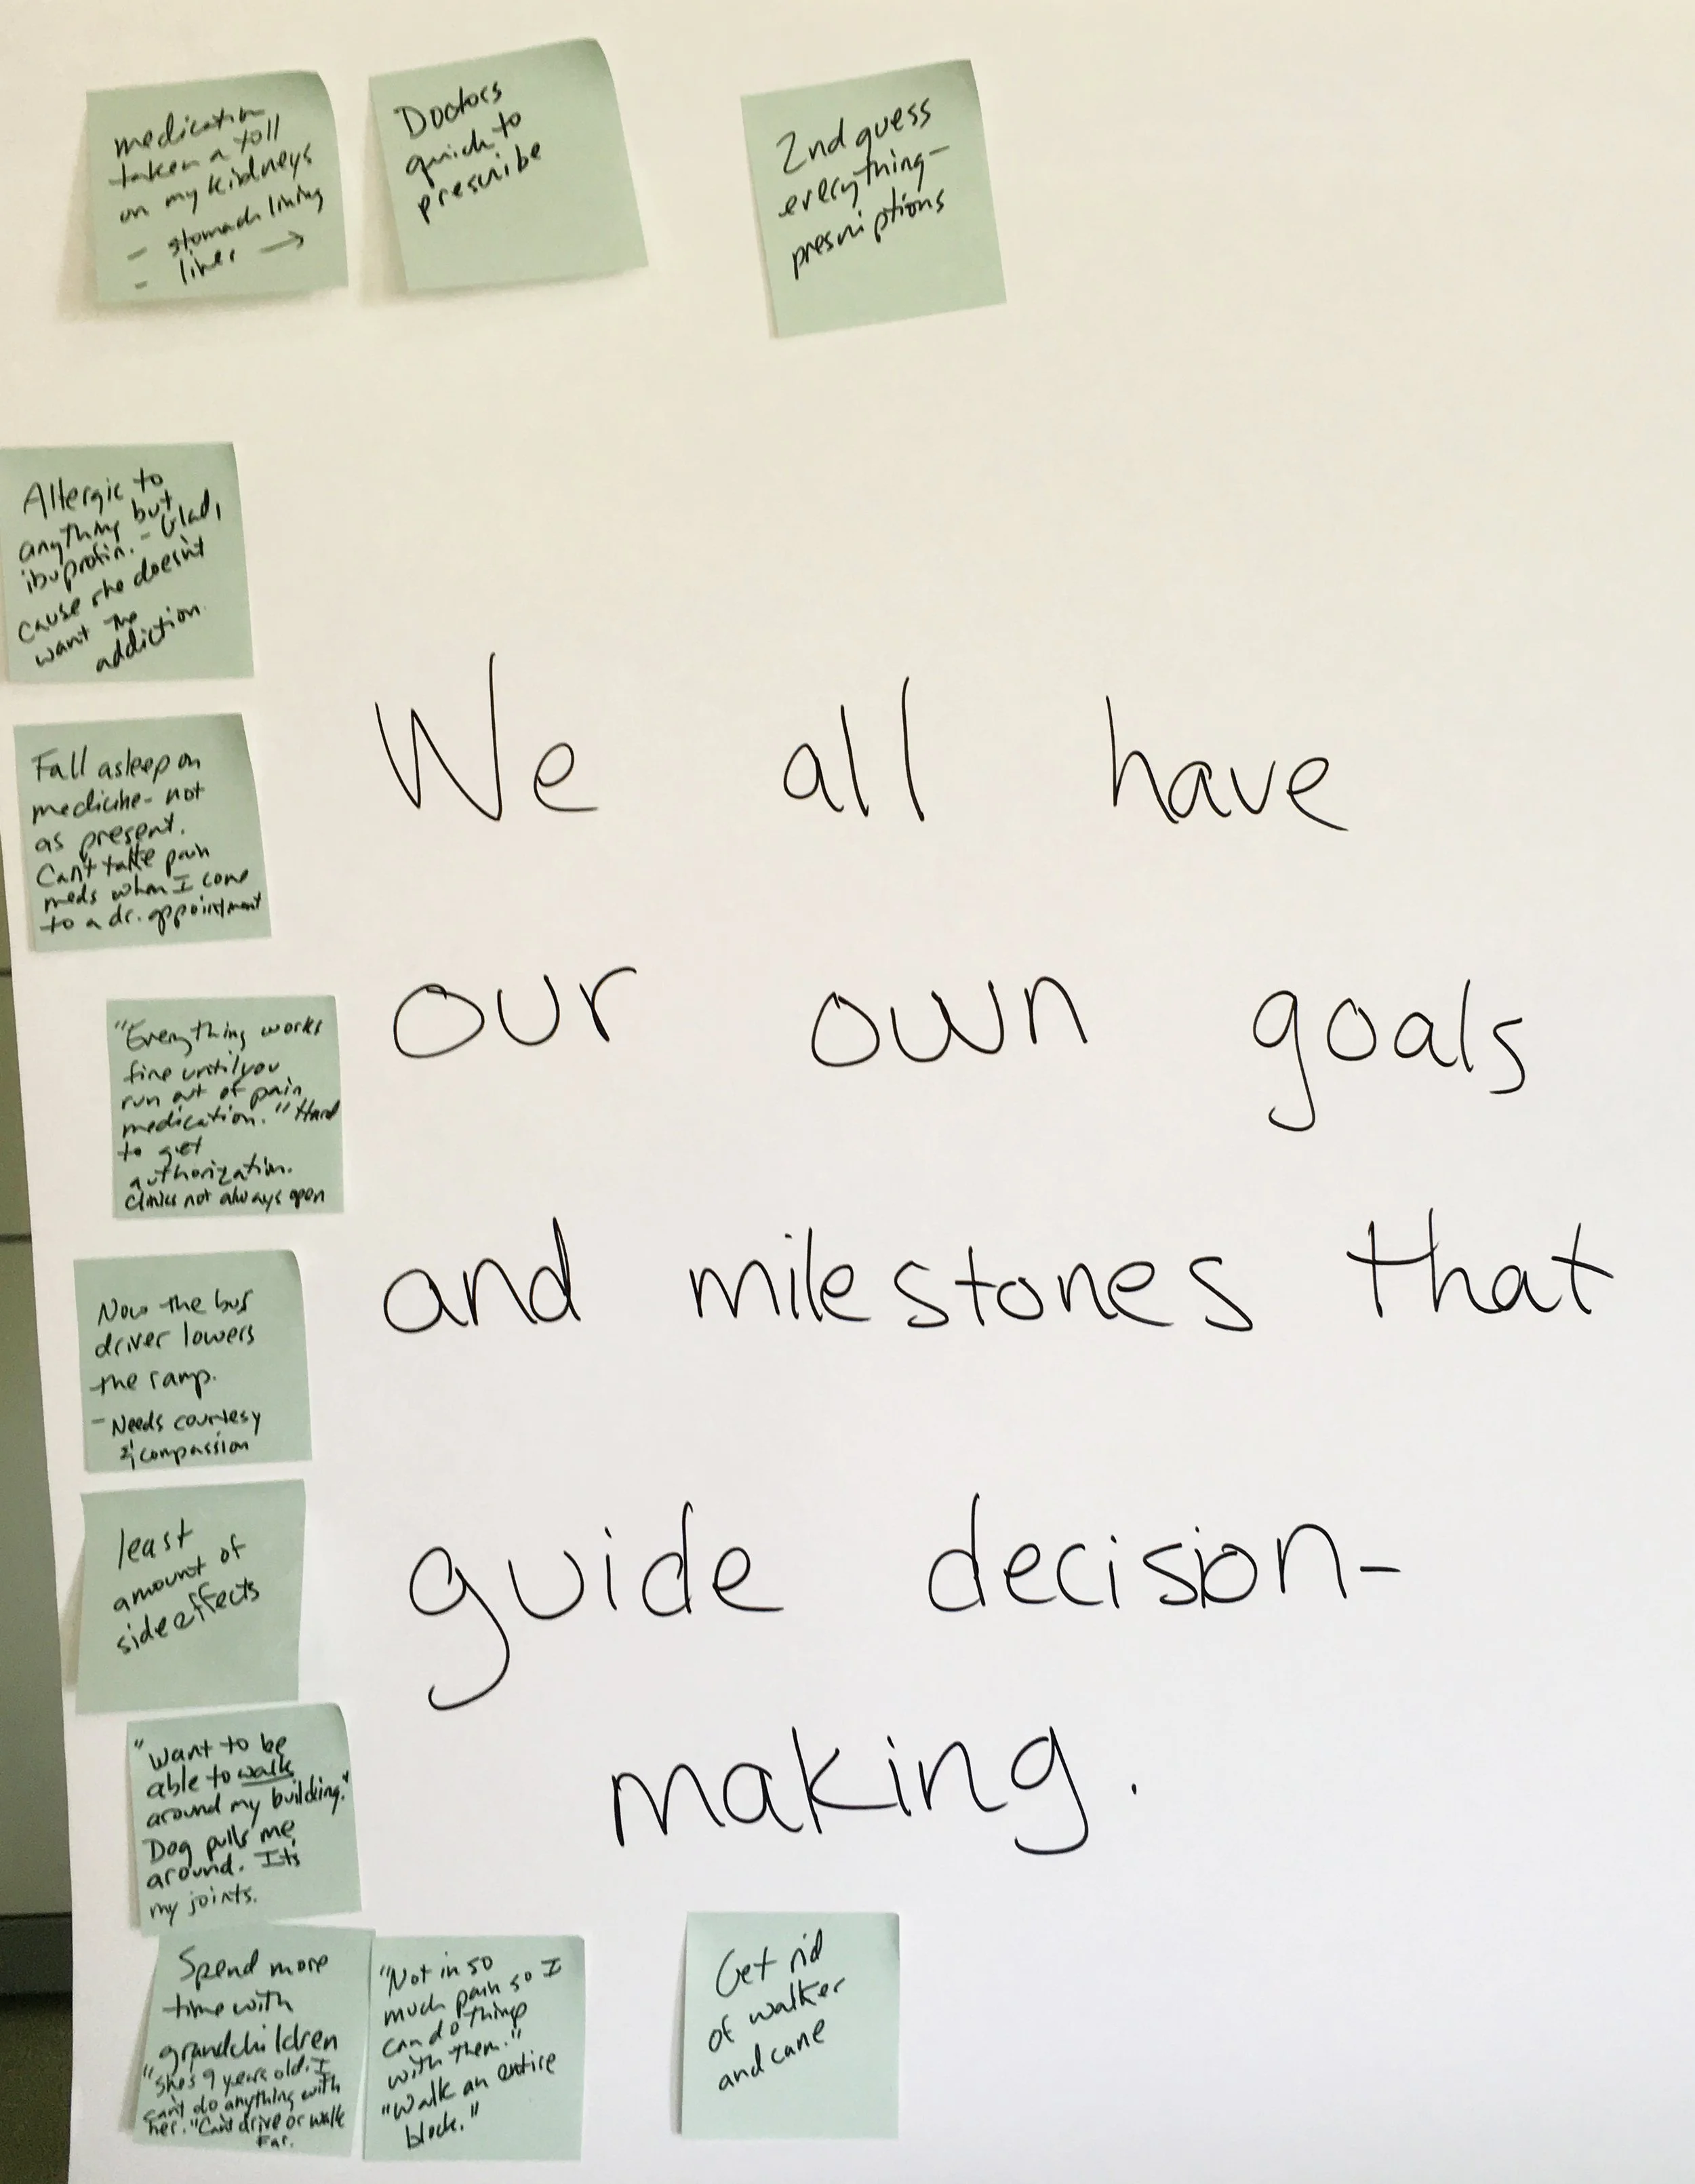 medication
taken a toll
on my kidneys
- stomach lining
- liver →
Doctors
quick to
prescribe
2nd guess
everything-
prescriptions
Allergic to
anything but
ibuprofin. - Glad,
cause she doesn't
want the
addiction.
Fall asleep on
medicine - not
as present.
Can't take pain
meds when I come
to a dr. appointment
"Everything works
fine until you
run out of pain
medication." Hard
to get
authorization.
Clinics not always open
Now the bus
driver lowers
the ramp.
- Needs courtesy
& compassion
least
amount of
side effects
"Want to be
able to walk
around my building."
Dog pulls me
around. It's
my joints.
We all have
our own goals
and milestones that
guide decision-
making.
Spend more
time with
grandchildren
"She's 9 years old. I
can't do anything with
her." Can't drive or walk
far.
"Not in so
much pain so I
can do things
with them."
"Walk an entire
block."
Get rid
of walker
and cane